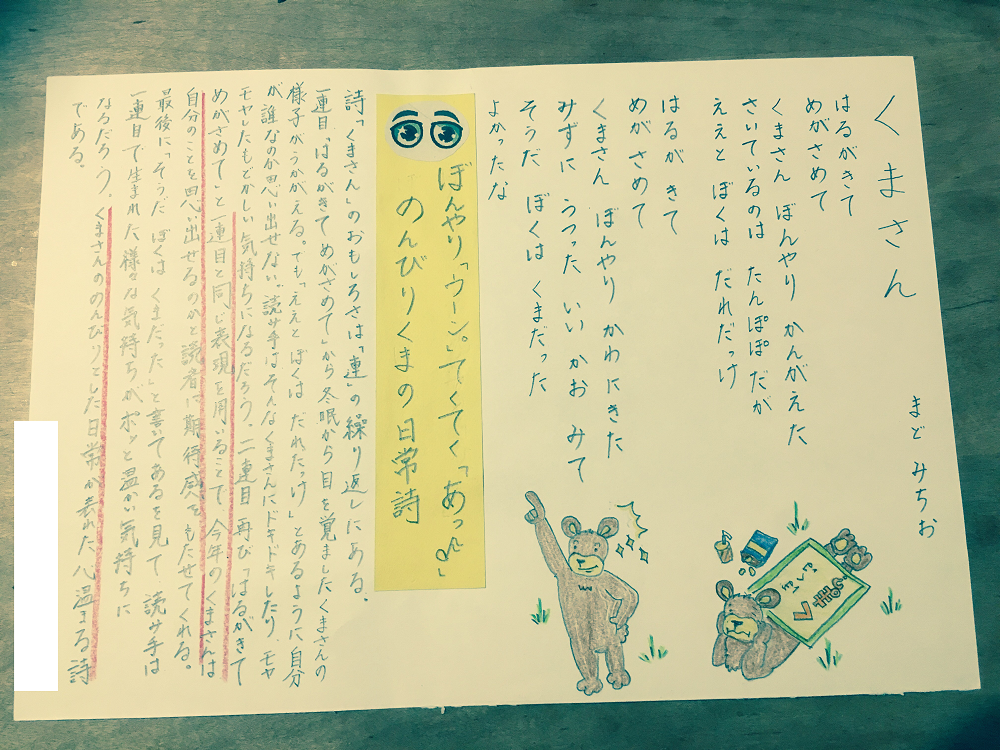 くまさん
まど みちお
はるがきて
めがさめて
くまさん ぼんやり かんがえた
さいているのは たんぽぽだが
ええと ぼくは だれだっけ
はるが きて
めが さめて
くまさん ぼんやり かわにきた
みずに うつった いい かお みて
そうだ ぼくは くまだった
よかったな
ぼんやり「ウーン。」てくてく「あっ」
のんびりくまの日常詩
詩「くまさん」のおもしろさは「連」の繰り返しにある。
一連目「はるがきて めがさめて」から冬眠から目を覚ましたくまさんの
様子がうかがえる。でも「ええと ぼくは だれたっけ」とあるように自分
が誰なのか思い出せない。読み手はそんなくまさんにドキドキしたり、モヤ
モヤしたもどかしい気持ちになるだろう。二連目 再び「はるがきて
めがさめて」と一連目と同じ表現を用いることで 今年のくまさんは
自分のことを思い出せるのかと読者に期待感をもたせてくれる。
最後に「そうだ ぼくは くまだった」と書いてあるを見て、読み手は
一連目で生まれた様々な気持ちがポッと温かい気持ちに
なるだろう。くまさんののんびりとした日常が表れた心温まる詩
である。